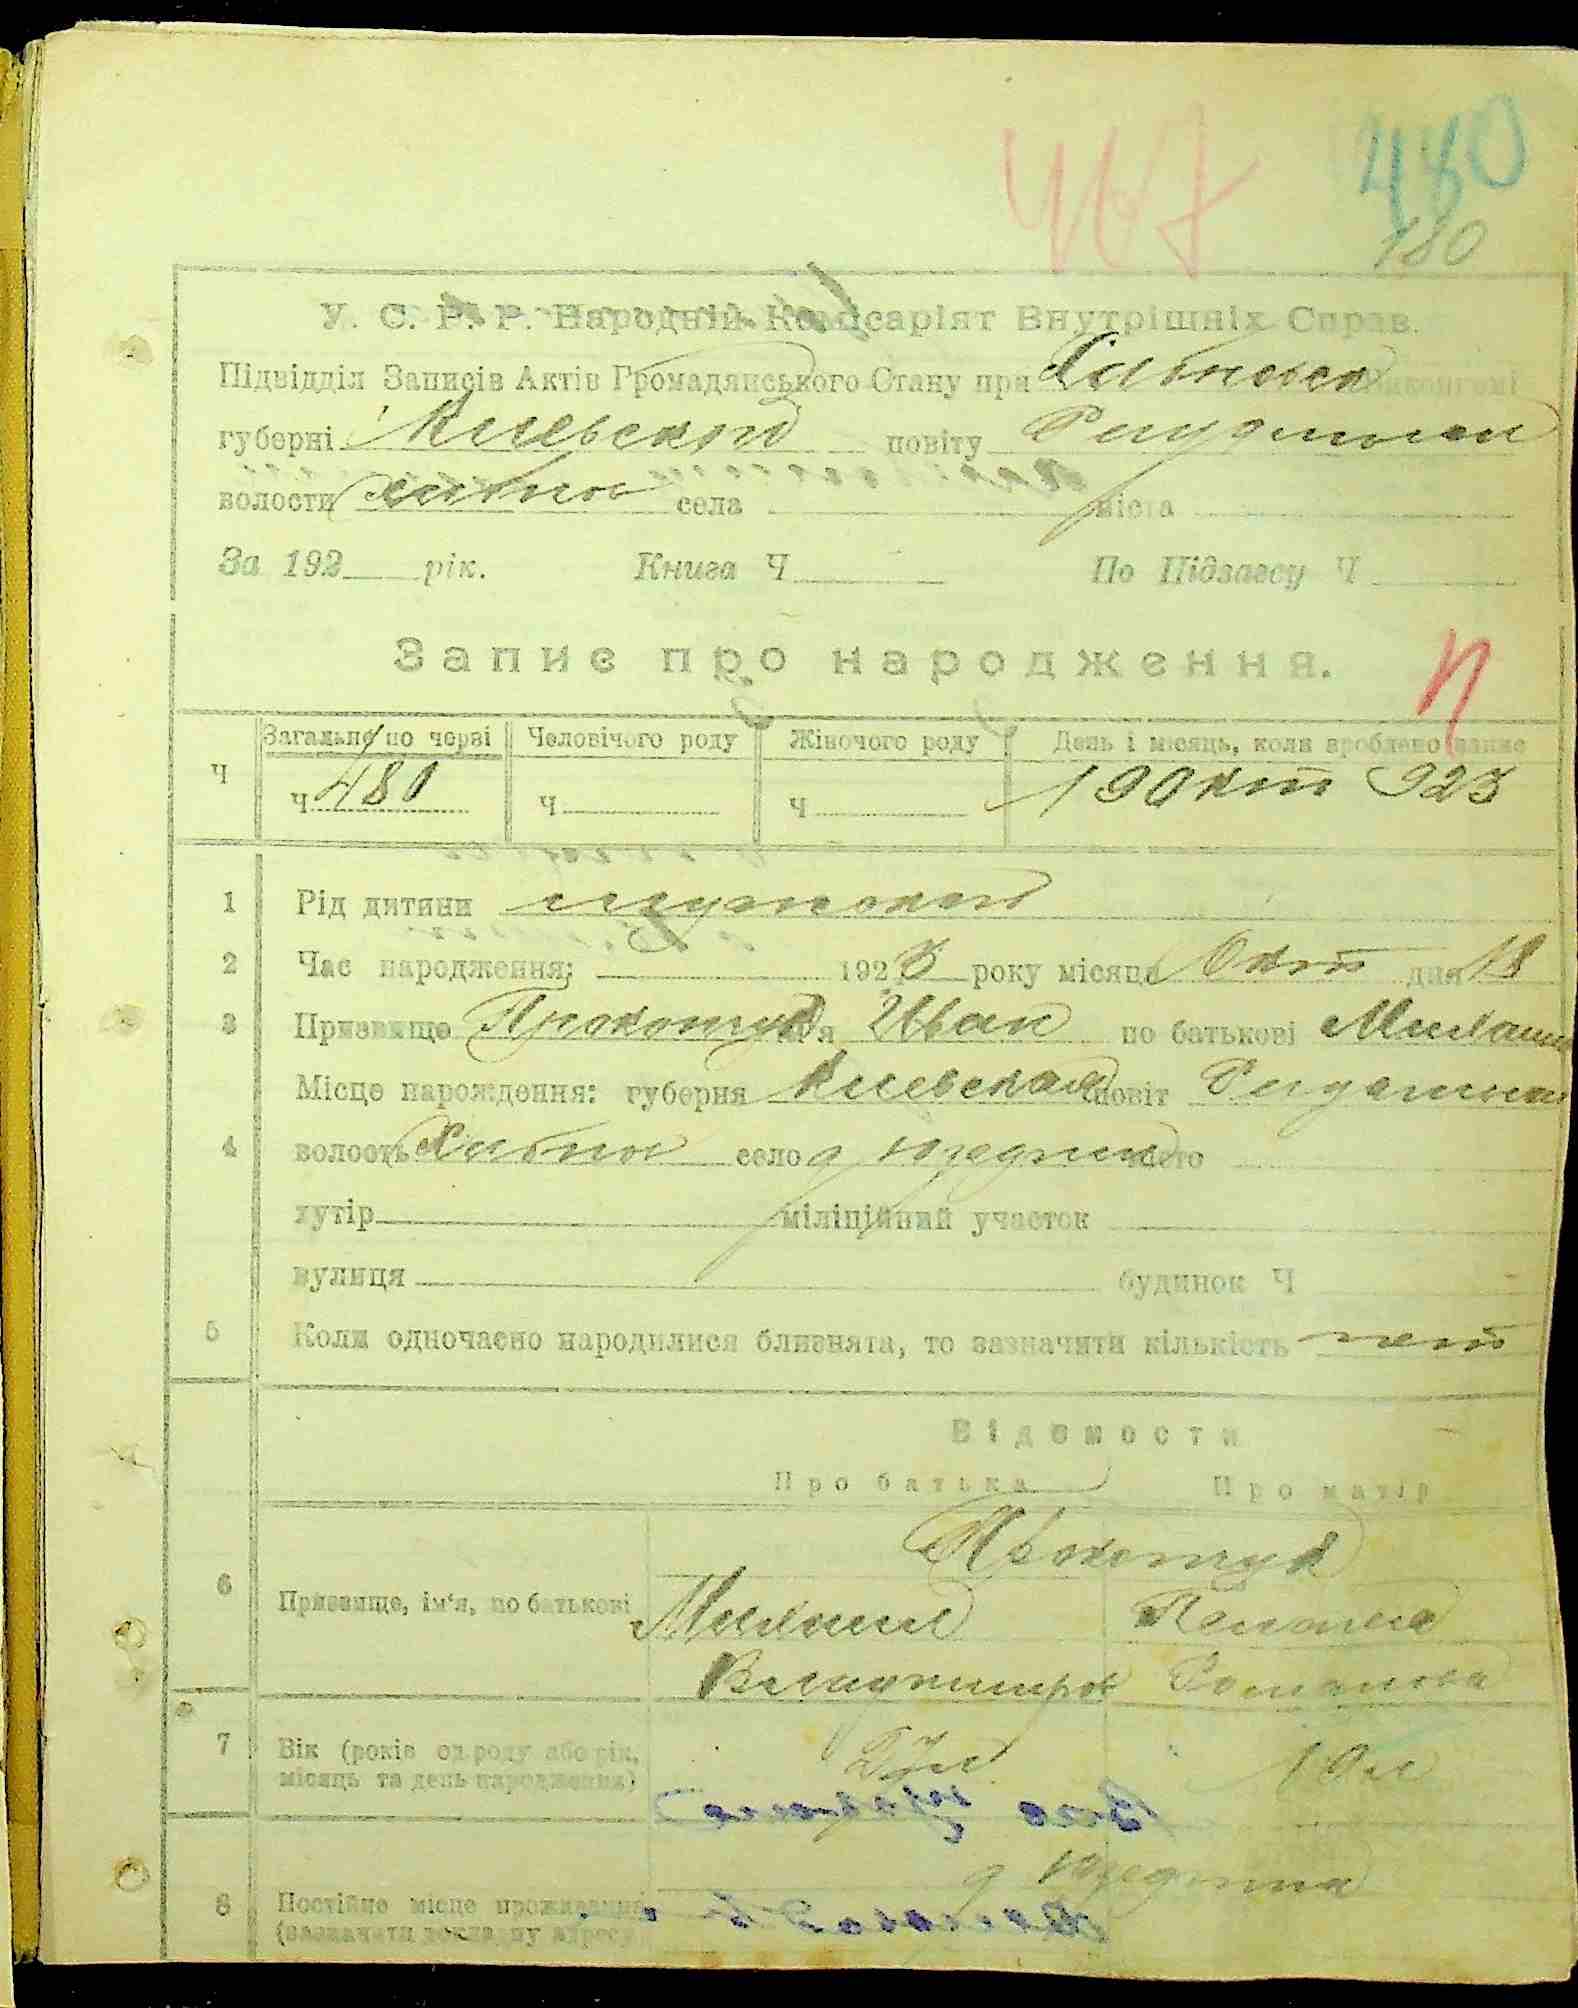 467 480
180
У. С. Р. Р. Народній Комісаріят Внутрішніх Справ.
Підвідділ Записів Актів Громадянського Стану при Хабнося Виконкомі
губерні Киевской повіту
волости Хабное села міста
За 192 рік. Книга Ч По Підзагсу Ч
Запис про народження.
П
Загальне по черзі Человічого роду Жіночого роду День і місяць, коли зроблено запис
Ч Ч 480 Ч Ч 19 Окт 923
1 Рід дитини мужской
2 Час народження: 1923 року місяця Окт дня 18
3 Призвище Прокопчук ім'я Иван по батькові
Місце народження: губерня Киевская повіт
4 волость Хабное село місто
хутір міліційний участок
вулиця будинок Ч
5 Коли одночасно народилися близнята, то зазначити кількість нет
Відомости
Про батька Про матір
Прокопчук
6 Призвище, ім'я, по батькові Михаил
Романова
7 Вік (років од роду або рік,
місяць та день народження) 19 л
8 Постійне місце проживання
(зазначити докладну адресу